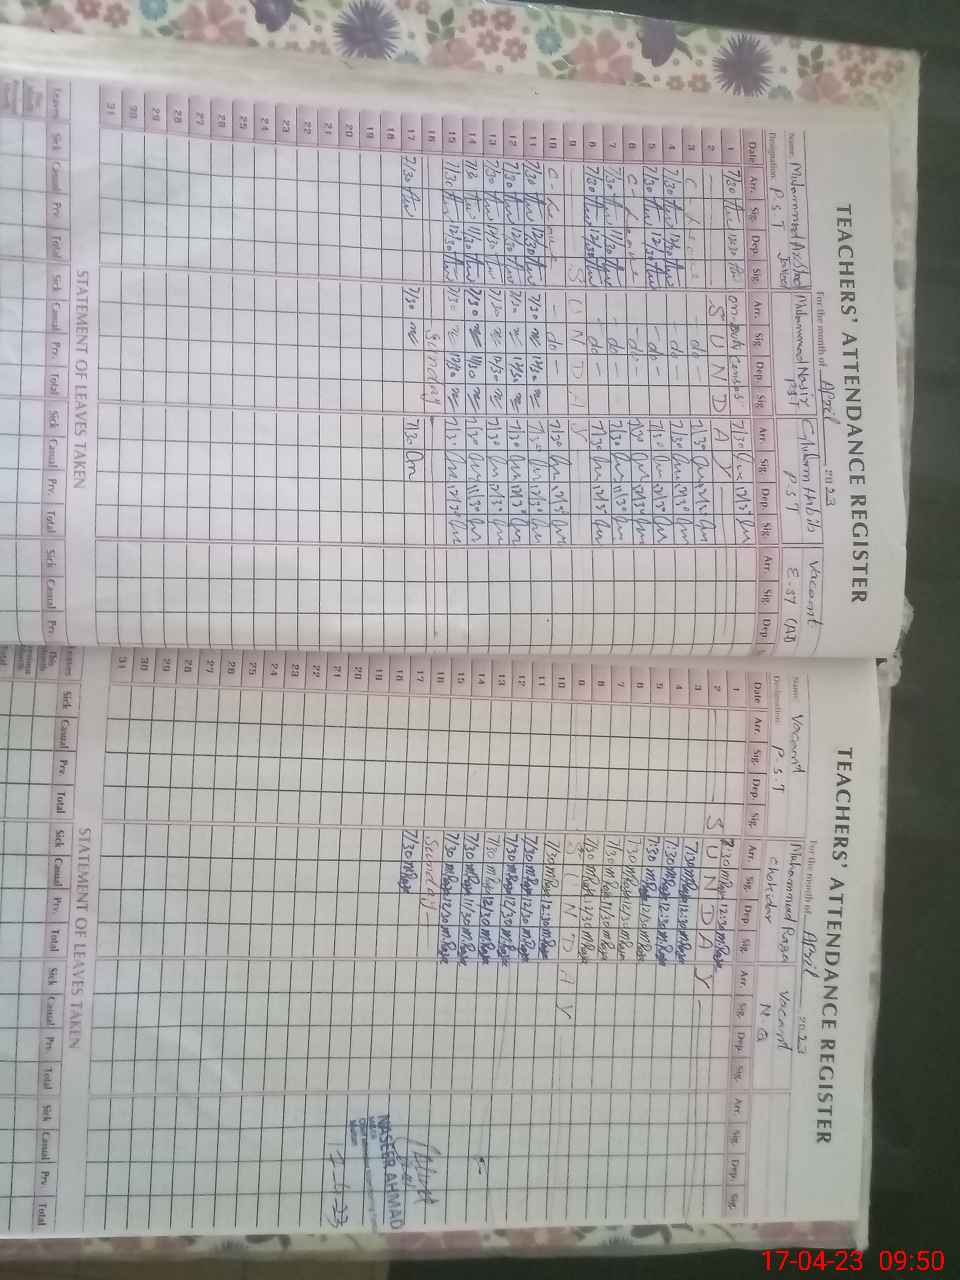 TEACHERS' ATTENDANCE REGISTER
For the month of April 2023
Name Muhammad Arshad Javed
Muhammad Nasir
Ghulam Habib
Vacant
Designation P S T
P S T
P S T
E.ST (AI)
Date Arr. Sig. Dep. Sig. Arr. Sig. Dep. Sig. Arr. Sig. Dep. Sig. Arr. Sig. Dep
1 7/30 12/30 on duty Census 7/30 12/30
2 S U N D A Y
3 C - Leave - do - 7/30 12/30
4 7/30 12/30 - do - 7/30 12/30
5 7/30 12/30 - do - 7/30 12/30
6 C - Leave - do - 7/30 12/30
7 7/30 11/30 - do - 7/30 11/30
8 7/30 12/30 - do - 7/30 12/30
9 S U N D A Y
10 C - Leave - do - 7/30 12/30
11 7/30 12/30 7/30 12/30 7/30 12/30
12 7/30 12/30 7/30 12/30 7/30 12/30
13 7/30 12/30 7/30 12/30 7/30 12/30
14 7/30 11/30 7/30 11/30 7/30 11/30
15 7/30 12/30 7/30 12/30 7/30 12/30
16 Sunday
17 7/30 7/30 7/30
18
19
20
21
22
23
24
25
26
27
28
29
30
31
STATEMENT OF LEAVES TAKEN
Leaves Sick Casual Prv. Total Sick Casual Prv. Total Sick Casual Prv. Total Sick Casual Prv.
TEACHERS' ATTENDANCE REGISTER
For the month of April 2023
Name Vacant
Muhammad Raza
Vacant
Designation P S T
Chokidar
N. Q
Date Arr. Sig. Dep. Sig. Arr. Sig. Dep. Sig. Arr. Sig. Dep. Sig. Arr. Sig. Dep. Sig.
1 7:30 M.Raza 12:30 M.Raza
2 S U N D A Y
3 7/30 M.Raza 12:30 M.Raza
4 7:30 M.Raza 12:30 M.Raza
5 7:30 M.Raza 12/30 M.Raza
6 7:30 M.Raza 12/30 M.Raza
7 7/30 M.Raza 11/30 M.Raza
8 7/30 M.Raza 12/30 M.Raza
9 S U N D A Y
10 7/30 M.Raza 12:30 M.Raza
11 7/30 M.Raza 12/30 M.Raza
12 7/30 M.Raza 12/30 M.Raza
13 7/30 M.Raza 12/30 M.Raza
14 7/30 M.Raza 11/30 M.Raza
15 7/30 M.Raza 12/30 M.Raza
16 Sunday
17 7/30 M.Raza
18
19
20
21
22
23
24
25
26
27
28
29
30
31
NASEER AHMAD
STATEMENT OF LEAVES TAKEN
Leaves Sick Casual Prv. Total Sick Casual Prv. Total Sick Casual Prv. Total Sick Casual Prv. Total
17-04-23 09:50